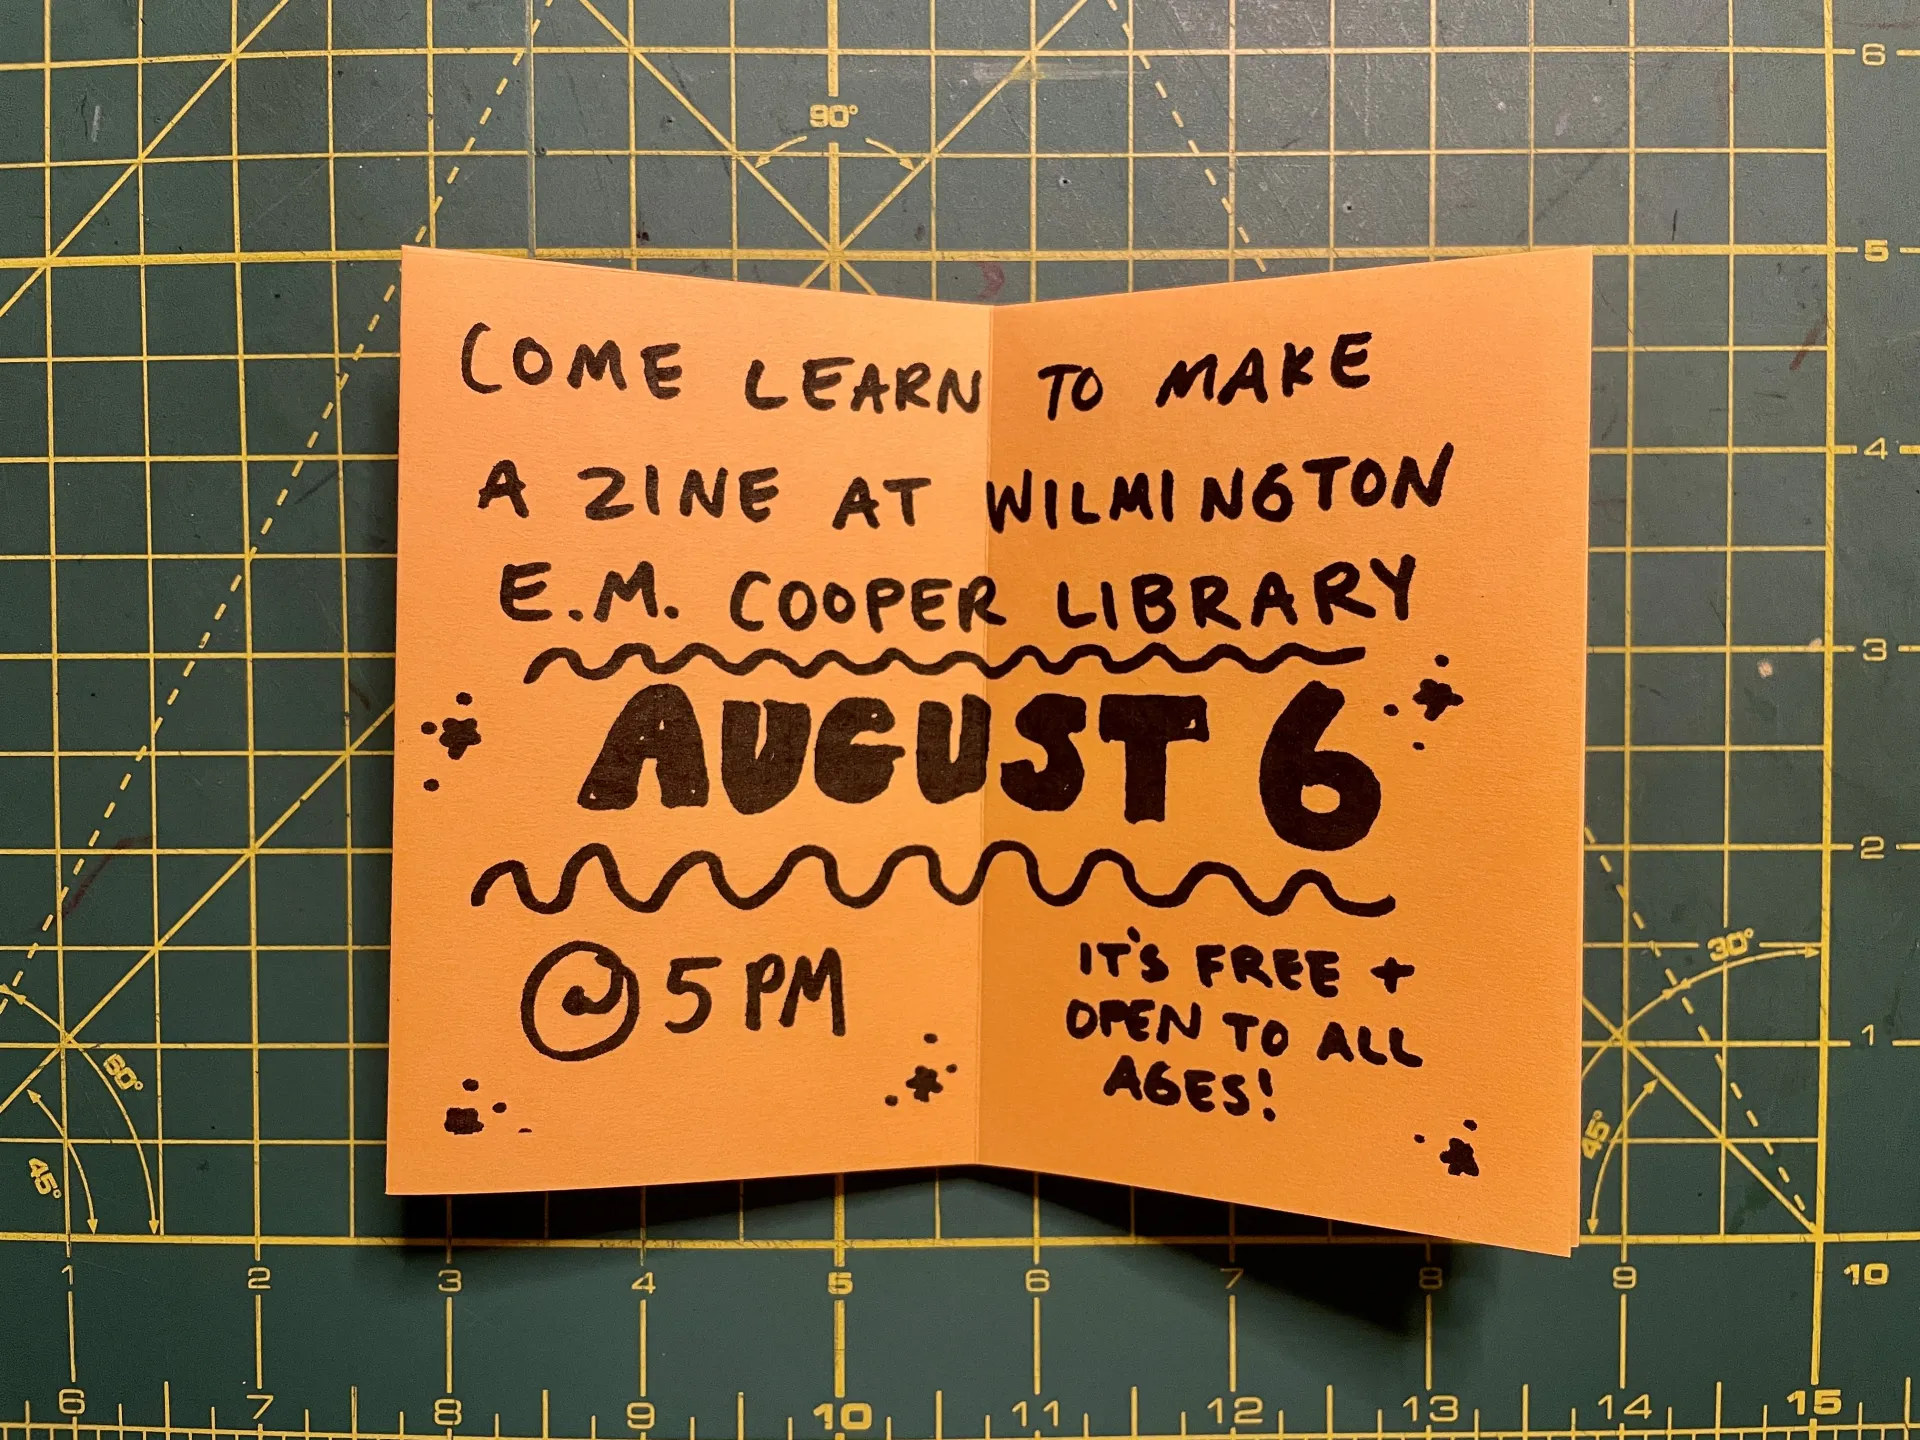 COME LEARN TO MAKE
A ZINE AT WILMINGTON
E.M. COOPER LIBRARY
AUGUST 6
@ 5 PM
IT'S FREE +
OPEN TO ALL
AGES!
90°
6
5
4
3
2
1
30°
45°
60°
45°
1 2 3 4 5 6 7 8 9 10
6 7 8 9 10 11 12 13 14 15